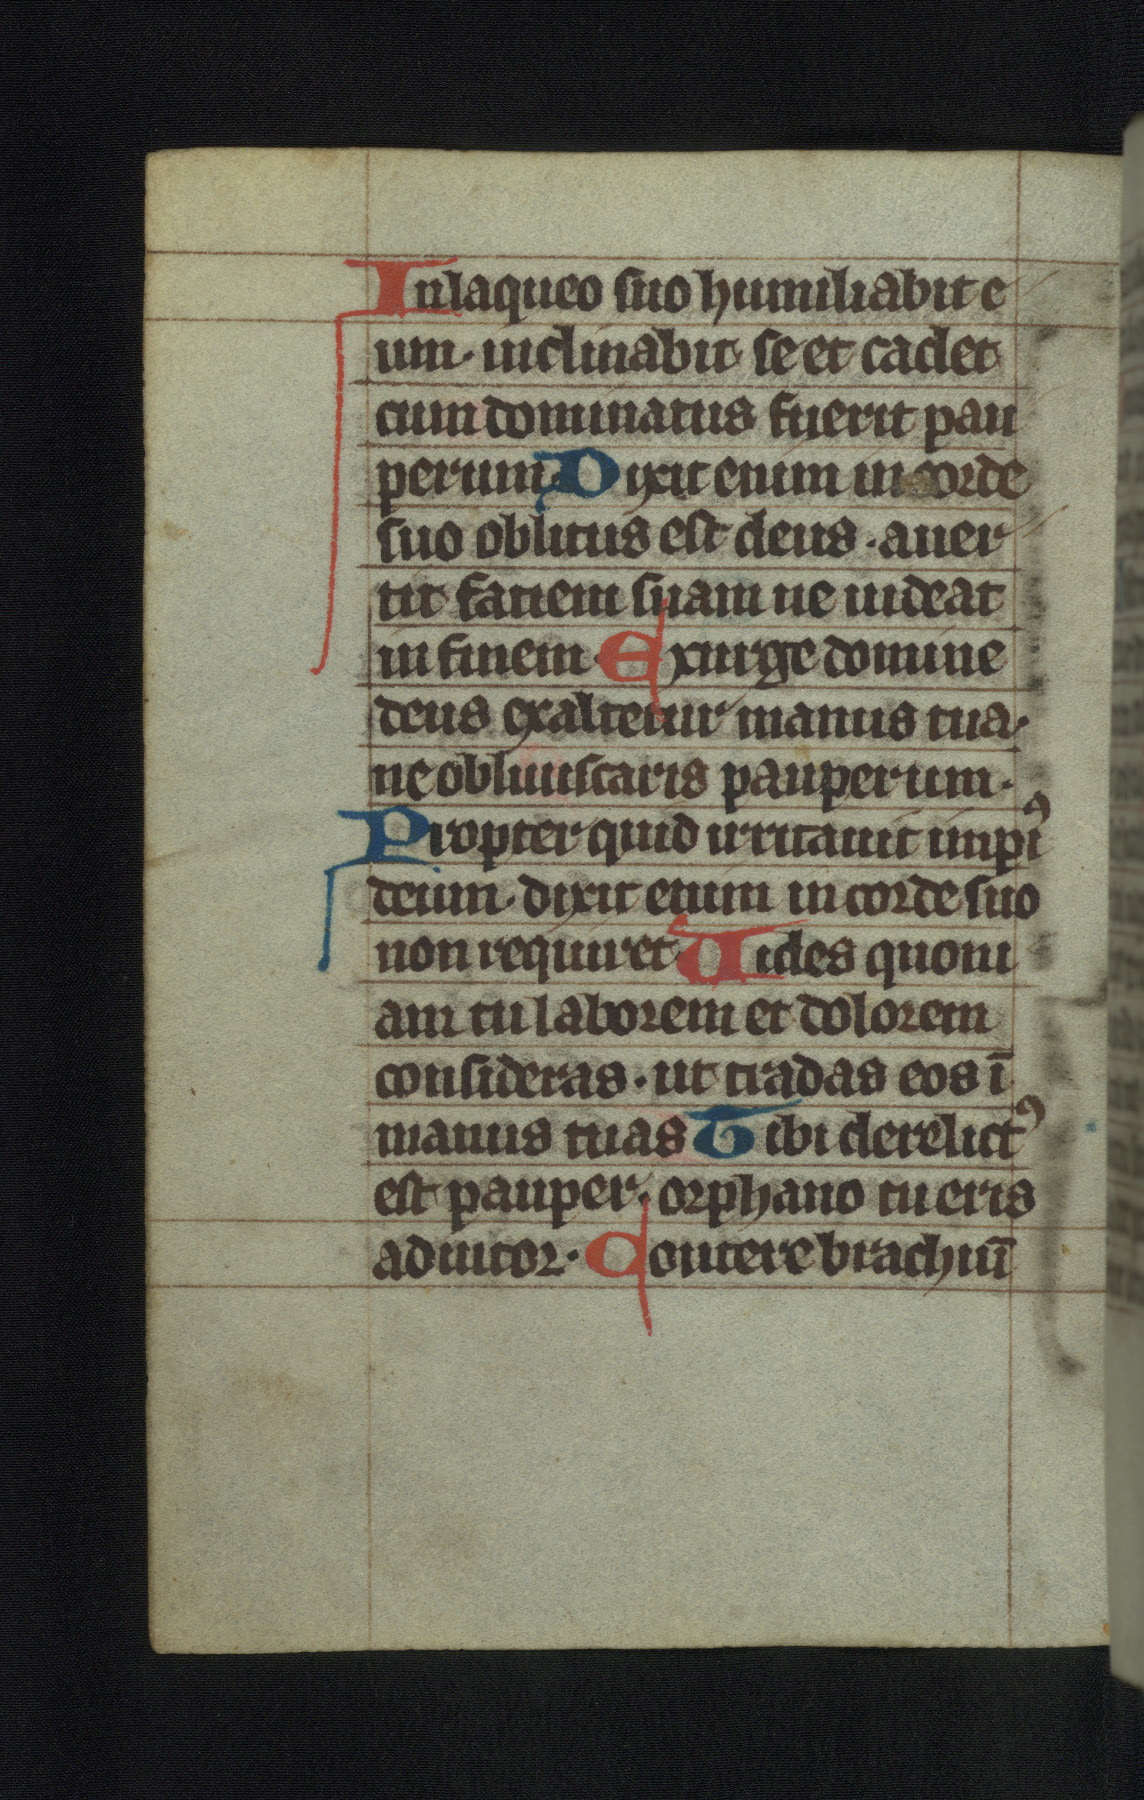 In laqueo suo humiliabit e
um · inclinabit se et cadet
cum dominatus fuerit pau
perum Dixit enim in corde
suo oblitus est deus · auer
tit faciem suam ne uideat
in finem · Exurge domine
deus exaltetur manus tua ·
ne obliuiscaris pauperum ·
Propter quid irritauit impiꝰ
deum · dixit enim in corde suo
non requiret Uides quoni
am tu laborem et dolorem
consideras · ut tradas eos ī
manus tuas Tibi derelictꝰ
est pauper · orphano tu eris
adiutor · Contere brachiū